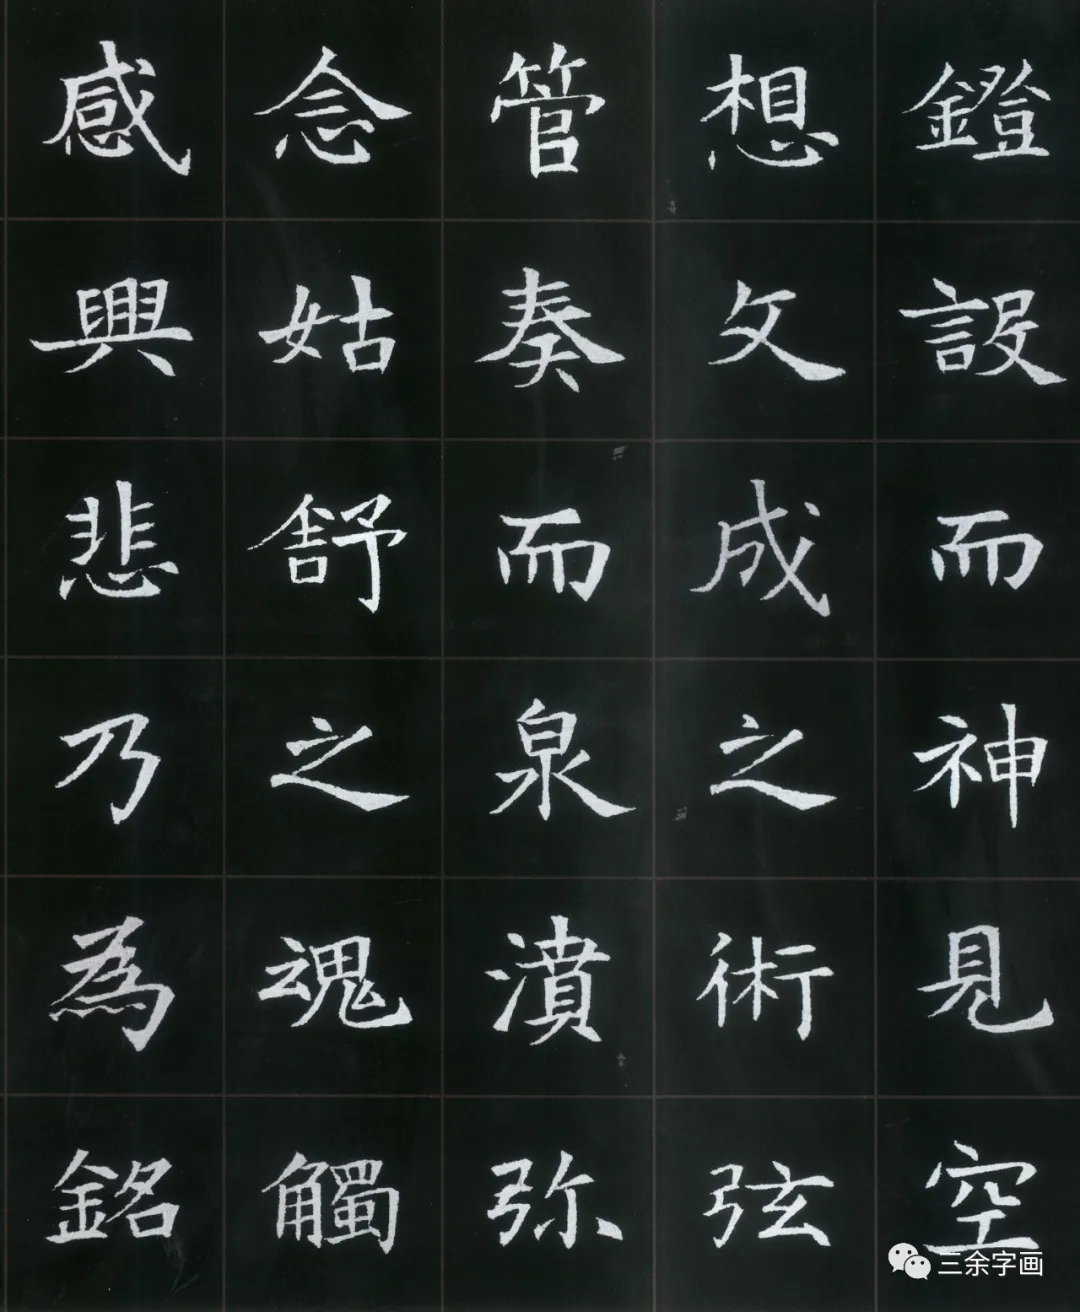 鐙設而神見空
想文成之術弦
管奏而泉濆弥
念姑舒之魂觸
感興悲乃為銘
三余字画